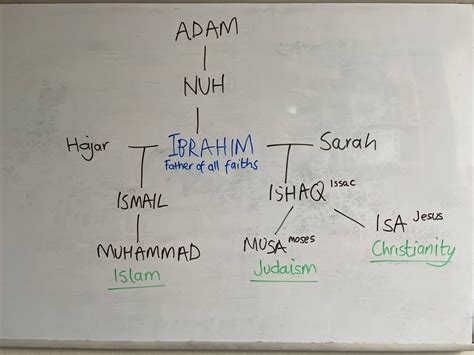 ADAM
NUH
Hajar IBRAHIM Sarah
Father of all faiths
ISMAIL ISHAQ Issac
MUHAMMAD MUSA moses ISA Jesus
Islam Judaism Christianity